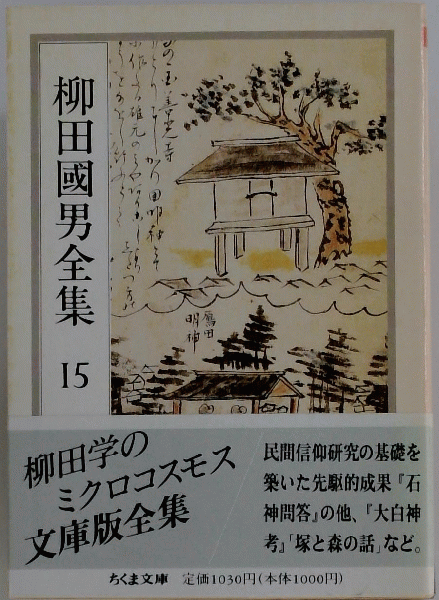 柳田國男全集
15
鷹田
明神
柳田学の
ミクロコスモス
文庫版全集
民間信仰研究の基礎を
築いた先駆的成果『石
神問答』の他、『大白神
考』「塚と森の話」など。
ちくま文庫 定価1030円(本体1000円)